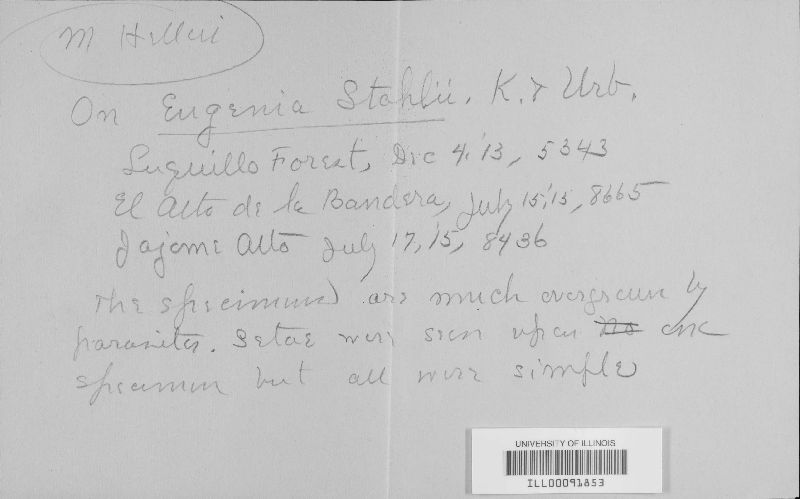 M Helleri
On Eugenia Stahlii. K. & Urb.
Luquillo Forest, Dec 4, '13, 5343
El Alto de la Bandera, July 15, '15, 8665
Jajome Alto July 17, '15, 8436
The specimens are much overgrown by
parasites. Setae were seen upon no one
specimen but all were simple
UNIVERSITY OF ILLINOIS
ILL00091853